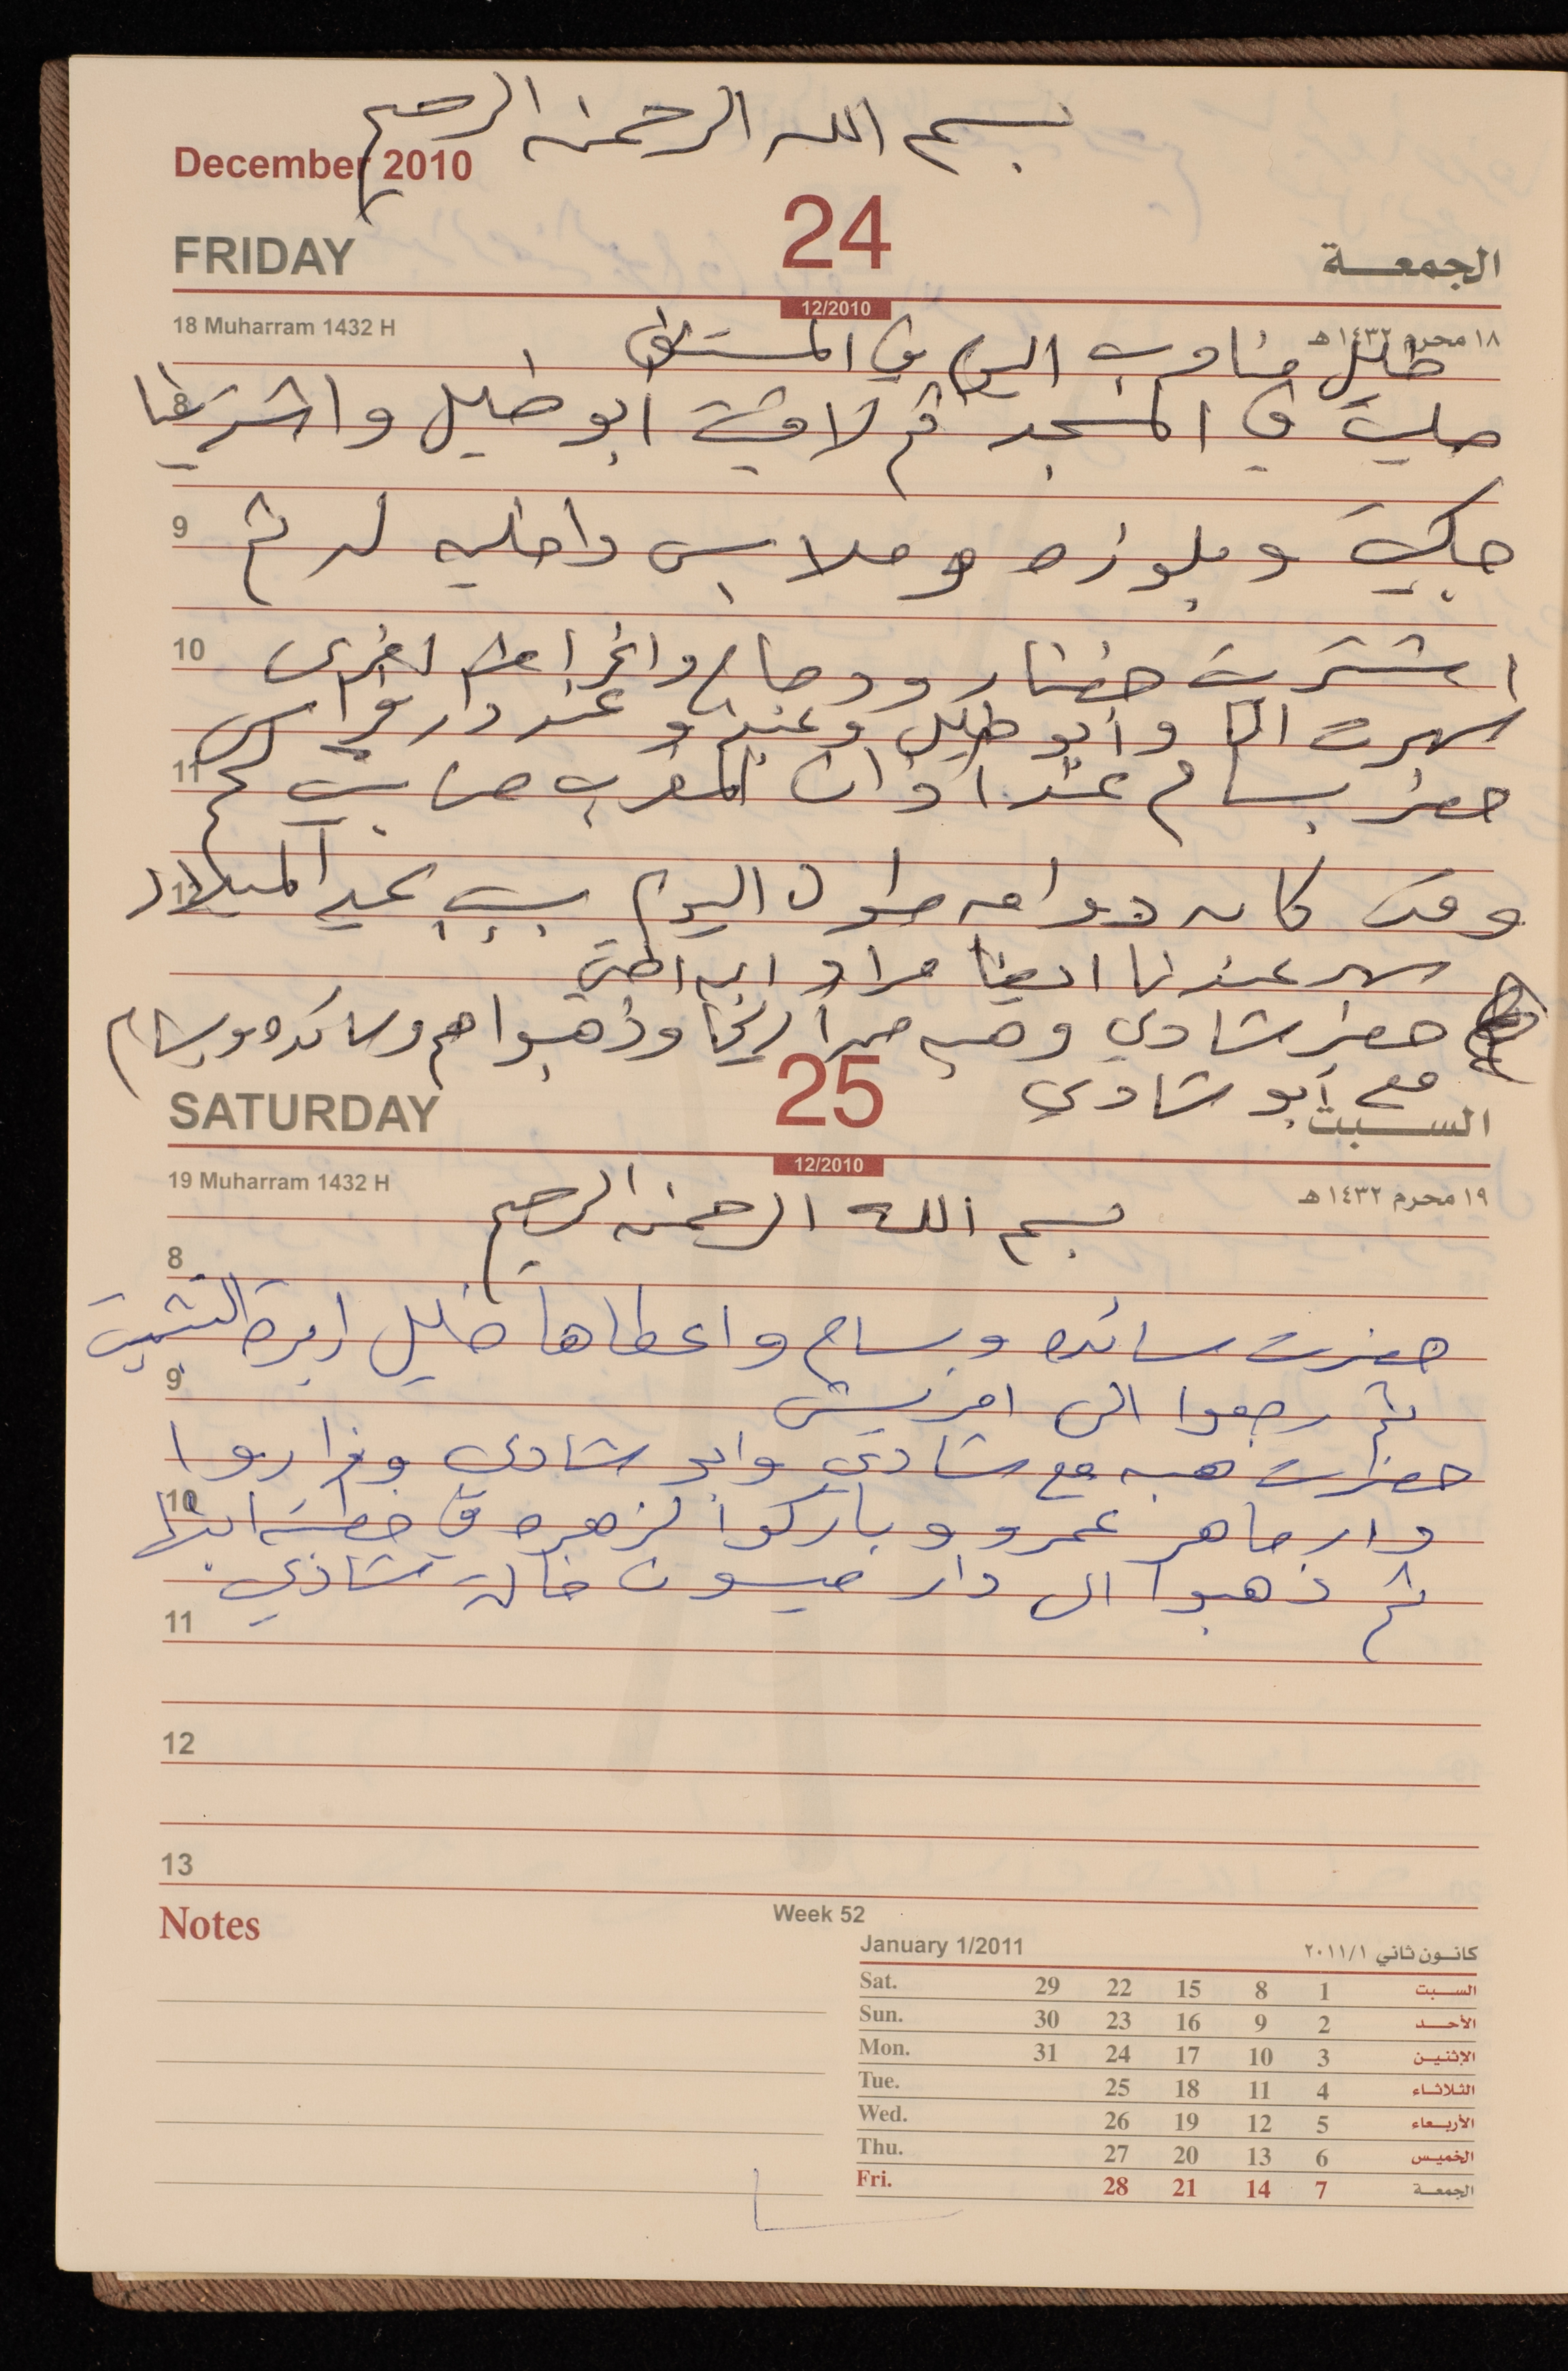 بسم الله الرحمن الرحيم
December 2010
FRIDAY 24 الجمعة
12/2010
18 Muharram 1432 H ١٨ محرم ١٤٣٢هـ
خليل مناوب اليوم في المستشفى
8 صليت في المسجد ثم لاقيت أبو خليل واشترينا
9 جاكيت وبلوزه وملابس داخليه له ثم
10 اشتريت خضار ودجاج واغراض اخرى
سهرت انا وأبو خليل وعند دار فراس
11 حضر بسام عند اذان المغرب من بيت لحم
12 وقد كان دوامه طول اليوم بسبب عيد الميلاد
سهر عندنا ايضا مراد ابن اختي
حضر شادي وهبه من أريحا وذهبوا هم وسائده وبسام
مع أبو شادي
SATURDAY 25 السبت
12/2010
19 Muharram 1432 H ١٩ محرم ١٤٣٢هـ
بسم الله الرحمن الرحيم
8
حضرت سائده وبسام واعطاها خليل ابرة التثبيت
9
ثم رجعوا الى امريش
حضرت هبه مع شادي وابو شادي وزاروا
10
دار ماهر عمرو وباركوا لزهره في خطبة ابنها
ثم ذهبوا الى دار ميسون خالة شادي
11
12
13
Notes
Week 52
January 1/2011 كانون ثاني ٢٠١١/١
Sat. 29 22 15 8 1 السبت
Sun. 30 23 16 9 2 الأحد
Mon. 31 24 17 10 3 الإثنين
Tue. 25 18 11 4 الثلاثاء
Wed. 26 19 12 5 الأربعاء
Thu. 27 20 13 6 الخميس
Fri. 28 21 14 7 الجمعة